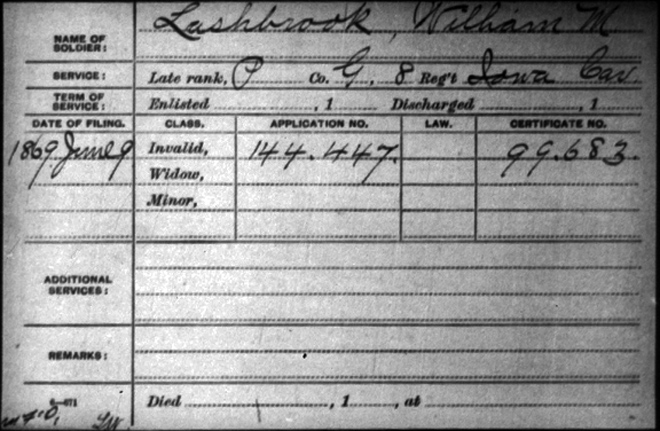 NAME OF SOLDIER: Lashbrook, William M
SERVICE: Late rank, P Co. G, 8 Reg't Iowa Cav.
TERM OF SERVICE: Enlisted , 1 Discharged , 1
DATE OF FILING. CLASS. APPLICATION NO. LAW. CERTIFICATE NO.
1869 June 9 Invalid, 144.447. 99.683.
Widow,
Minor,
ADDITIONAL SERVICES:
REMARKS:
Died , 1 , at